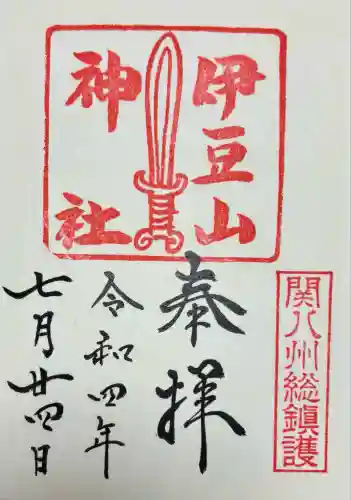 伊豆山
神社
奉拝
関八州総鎮護
令和四年
七月廿四日